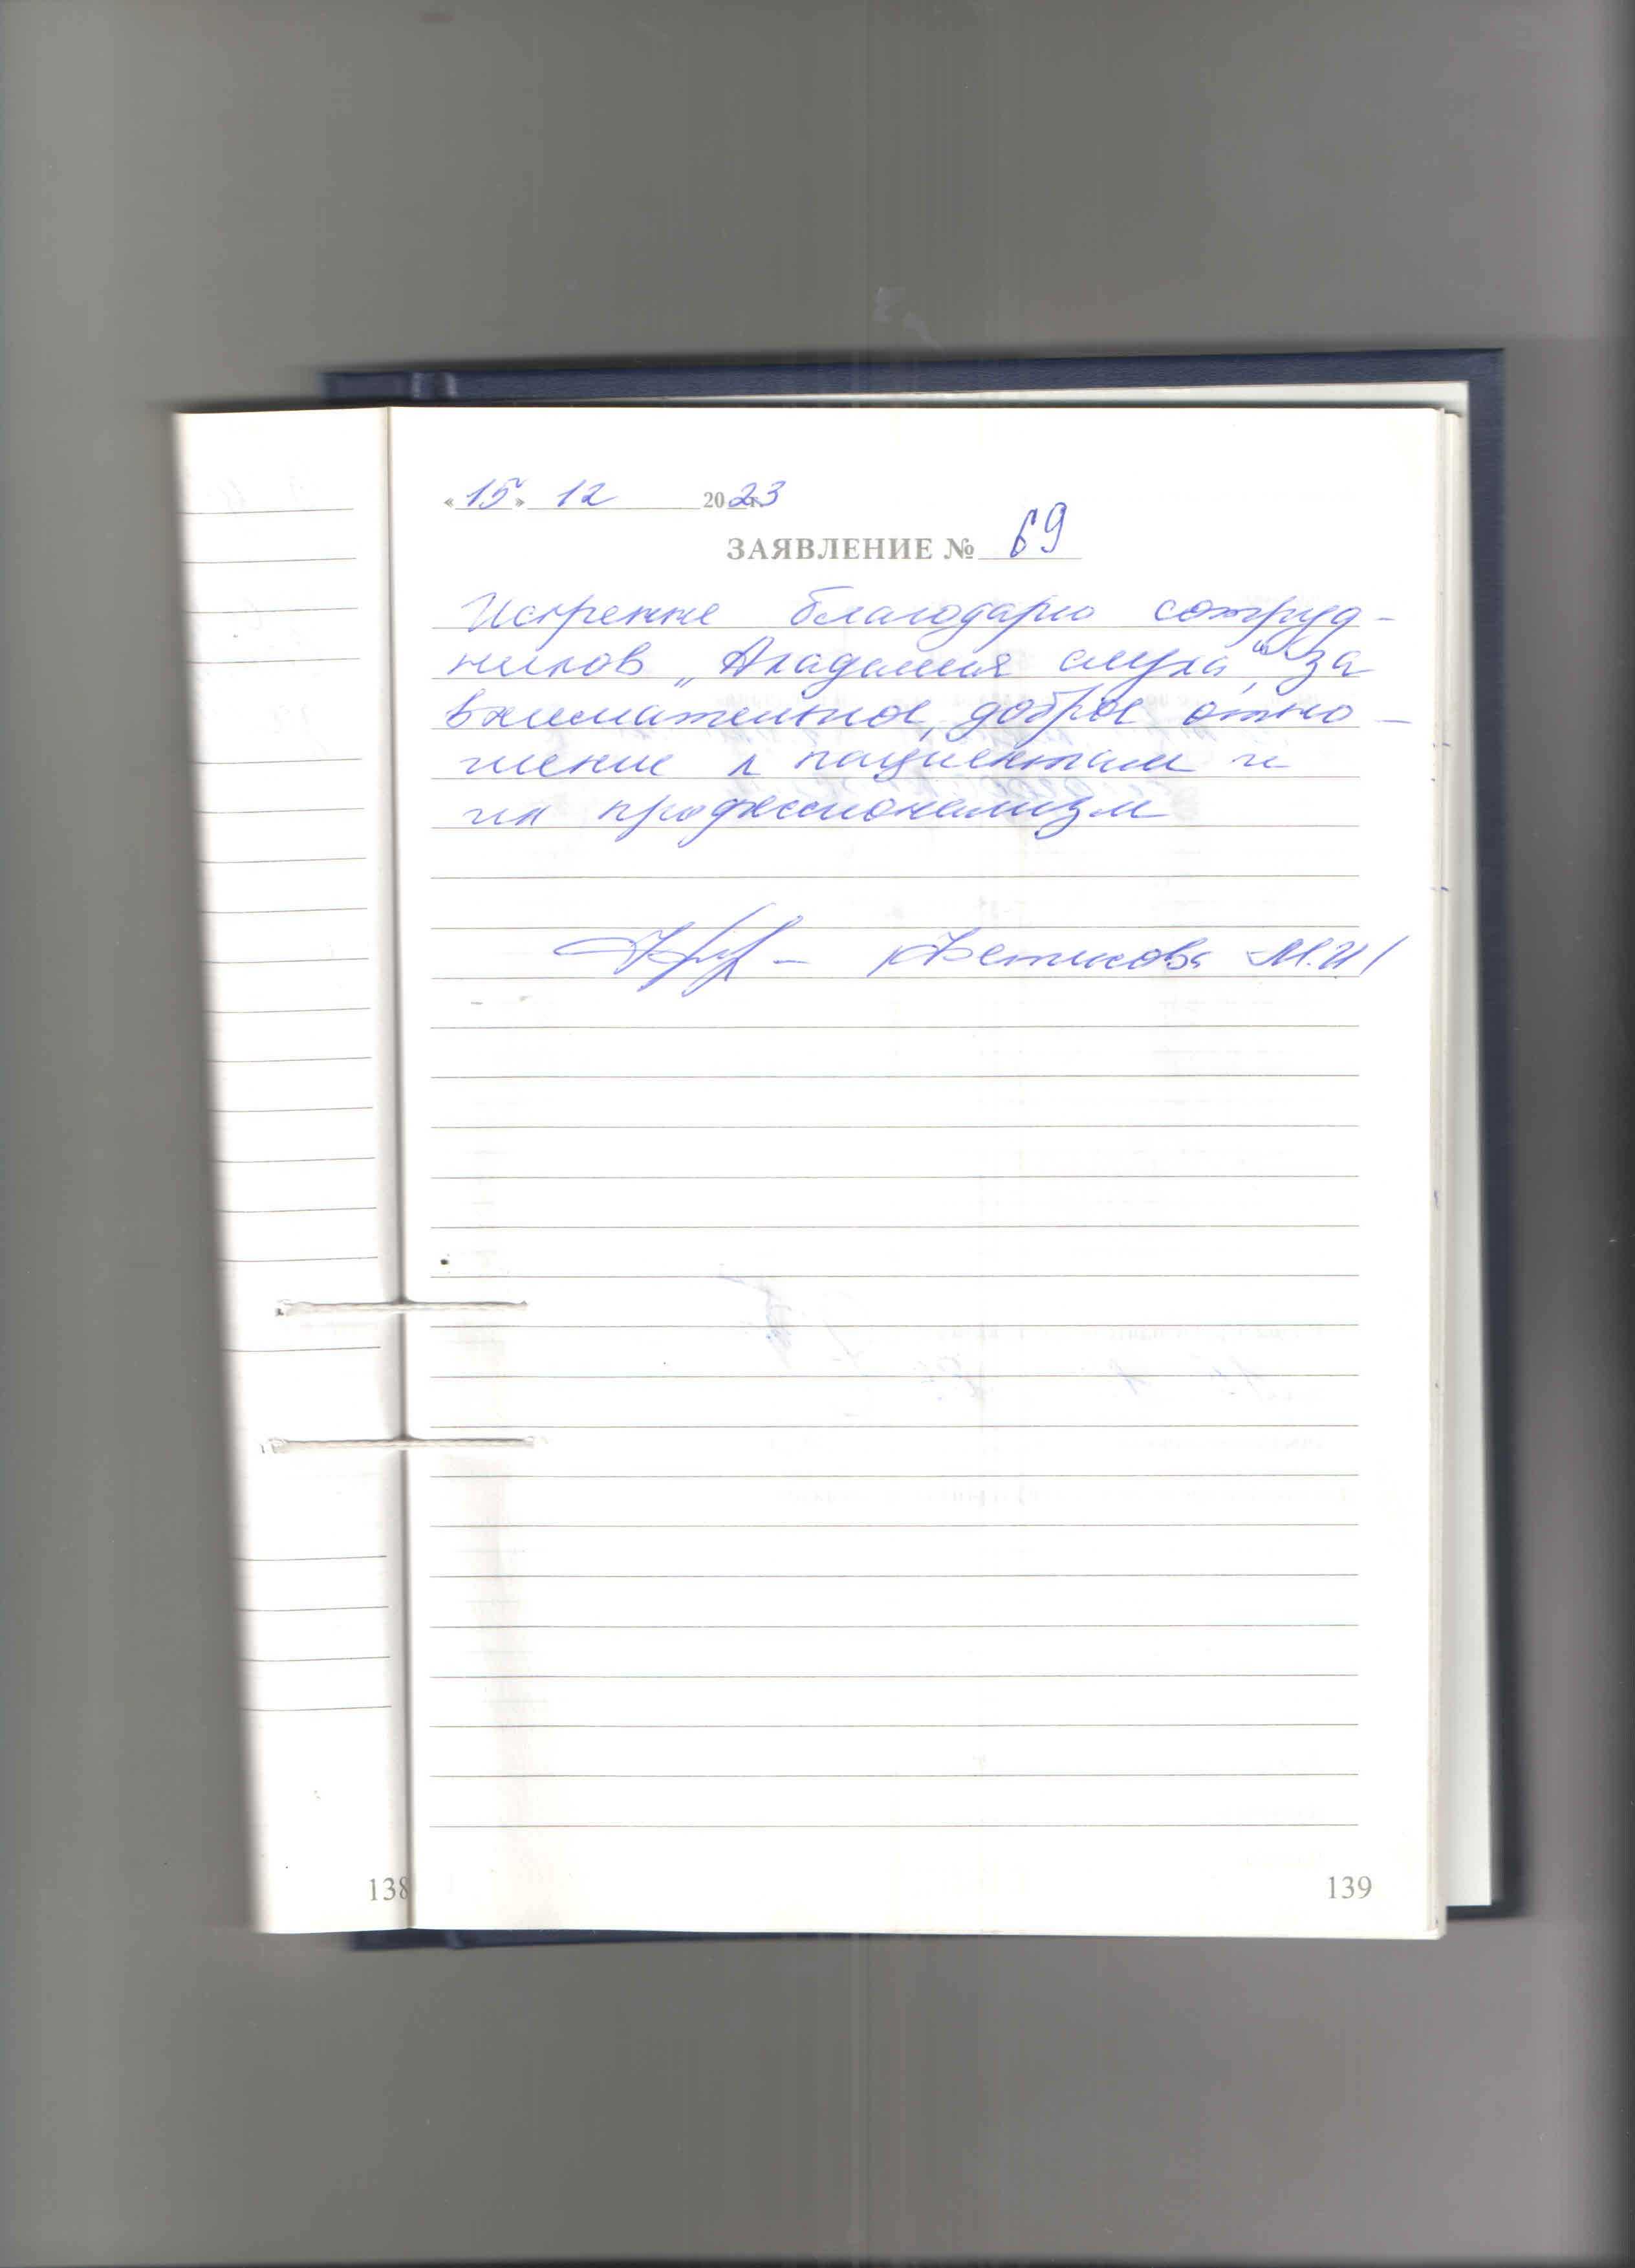 «15» 12 2023
ЗАЯВЛЕНИЕ № 69
Искренне благодарю сотруд-
ников „Академия слуха“ за
внимательное, доброе отно-
шение к пациентам и
их профессионализм
М.И
138
139